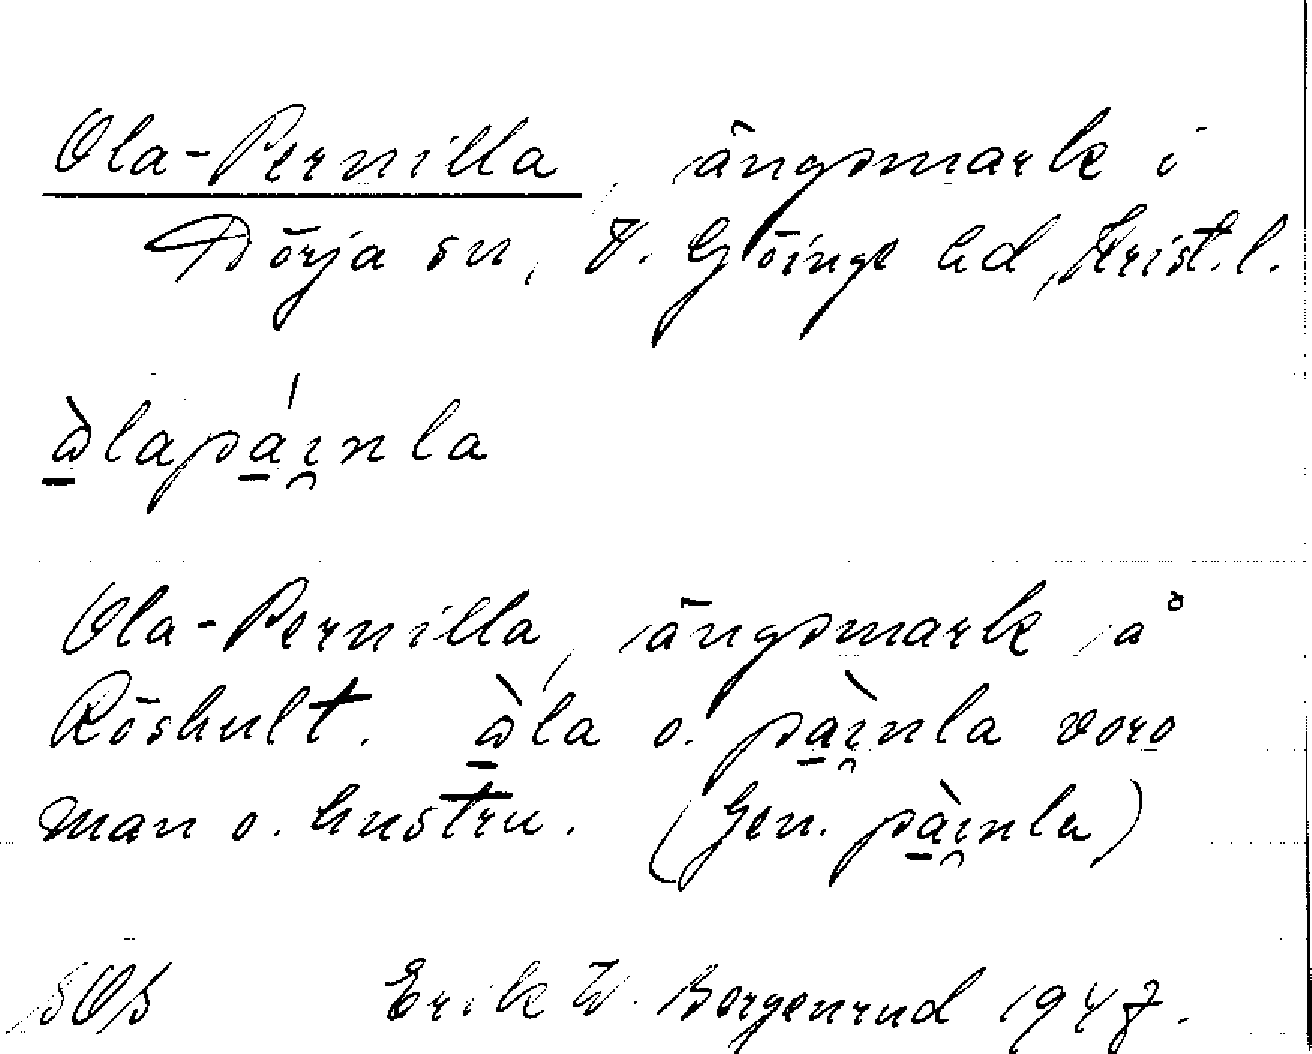 Ola-Pernilla, ängsmark i
Dörja sn, V. Göinge hd, Krist. l.
ὼlapáɪ̯nla
Ola-Pernilla, ängsmark å
Röshult. ὼla o. pàɪ̯nla voro
man o. hustru. (Gen. pàɪ̯nlu)
SOS Erik W. Borgenrud 1947.